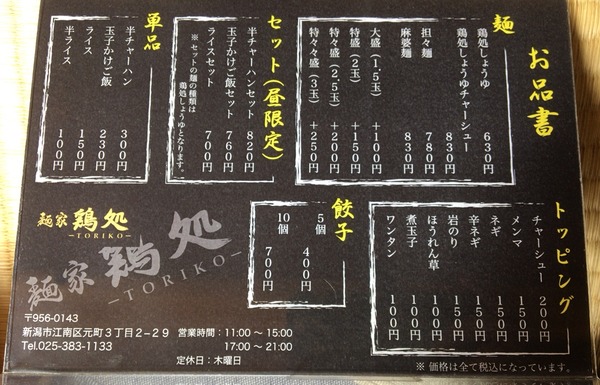 お品書
麺
鶏処しょうゆ 630円
鶏処しょうゆチャーシュー 830円
担々麺 780円
麻婆麺 830円
大盛（1.5玉） +100円
特盛（2玉） +150円
特々盛（2.5玉） +200円
特々々盛（3玉） +250円
セット（昼限定）
半チャーハンセット 820円
玉子かけご飯セット 760円
ライスセット 700円
※セットの麺の種類は
鶏処しょうゆとなります。
単品
半チャーハン 300円
玉子かけご飯 230円
ライス 150円
半ライス 100円
トッピング
チャーシュー 200円
メンマ 100円
ネギ 100円
辛ネギ 150円
岩のり 150円
ほうれん草 150円
煮玉子 100円
ワンタン 100円
餃子
5個 400円
10個 700円
麺家 鶏処
-TORIKO-
麺家 鶏処
-TORIKO-
〒956-0143
新潟市江南区元町3丁目2-29 営業時間：11:00～15:00
Tel.025-383-1133 17:00～21:00
定休日：木曜日
※価格は全て税込になっています。